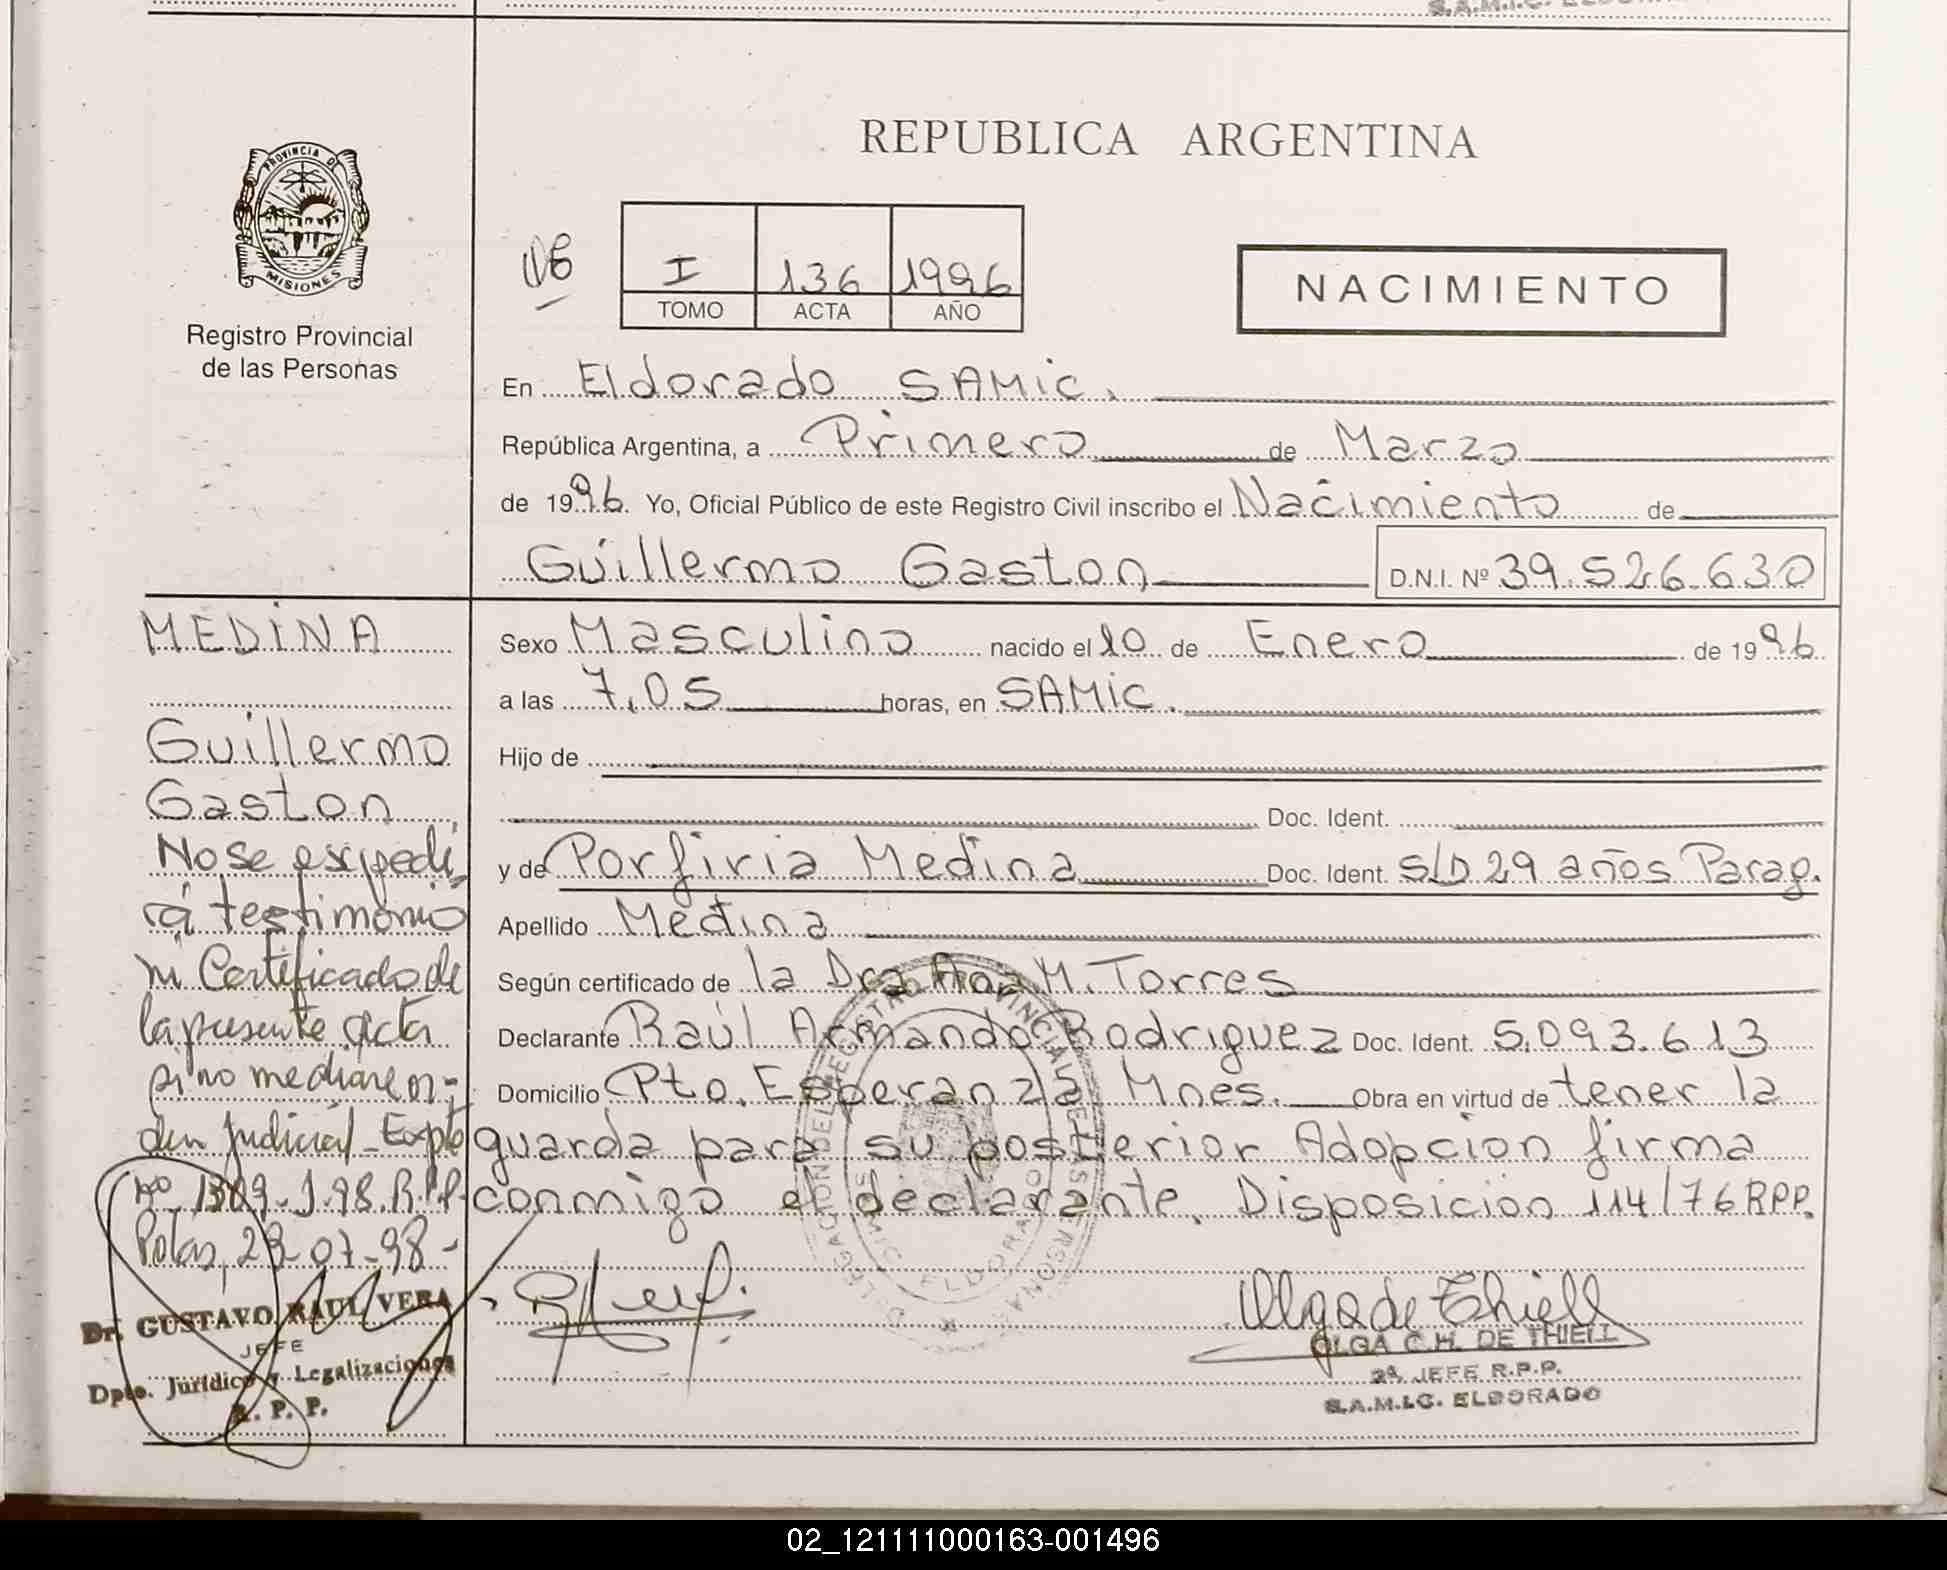 PROVINCIA DE
MISIONES
Registro Provincial
de las Personas
REPUBLICA ARGENTINA
I 136 1996
TOMO ACTA AÑO
NACIMIENTO
En Eldorado SAMIC.
República Argentina, a Primero de Marzo
de 1996. Yo, Oficial Público de este Registro Civil inscribo el Nacimiento de
Guillermo Gaston D.N.I. Nº 39.526.630
MEDINA
Guillermo
Gaston
No se expedi
rá testimonio
ni Certificado de
la presente acta
si no mediare or-
den Judicial - Expte
nº 1309-J-98.R.P.P.
Pdas, 29-07-98-
Dr. GUSTAVO RAUL VERA
JEFE
Dpto. Jurídico y Legalizaciones
R. P. P.
Sexo Masculino nacido el 10 de Enero de 1996
a las 7,05 horas, en SAMIC.
Hijo de
Doc. Ident.
y de Porfiria Medina Doc. Ident. S/D 29 años Parag.
Apellido Medina
Según certificado de la Dra Ana M. Torres
Declarante Raúl Armando Rodriguez Doc. Ident. 5.093.613
Domicilio Pto. Esperanza Mnes. Obra en virtud de tener la
guarda para su posterior Adopcion firma
conmigo el declarante. Disposicion 114/76 RPP.
Olga de Thiell
OLGA C.H. DE THIELL
2ª JEFE R.P.P.
S.A.M.I.C. ELDORADO
02_121111000163-001496